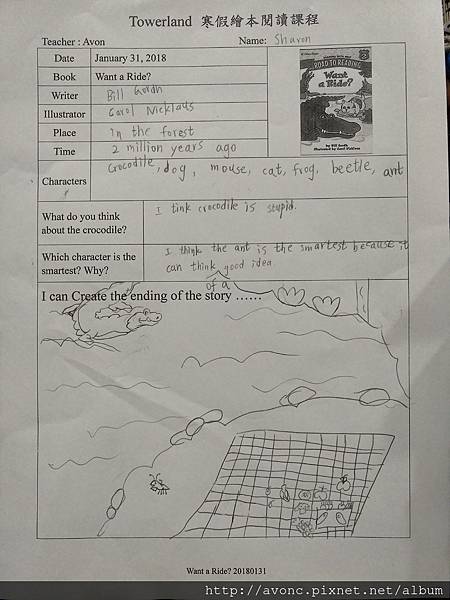 Towerland 寒假繪本閱讀課程
Teacher : Avon Name: Sharon
Date January 31, 2018
Book Want a Ride?
Writer Bill Gordh
Illustrator Carol Nicklaus
Place In the forest
Time 2 million years ago
ROAD TO READING
Want a Ride?
Characters crocodile, dog, mouse, cat, frog, beetle, ant
What do you think about the crocodile? I tink crocodile is stupid.
Which character is the smartest? Why? I think the ant is the smartest because it can think of a good idea.
I can Create the ending of the story ……
Want a Ride? 20180131
http://avonc.pixnet.net/album